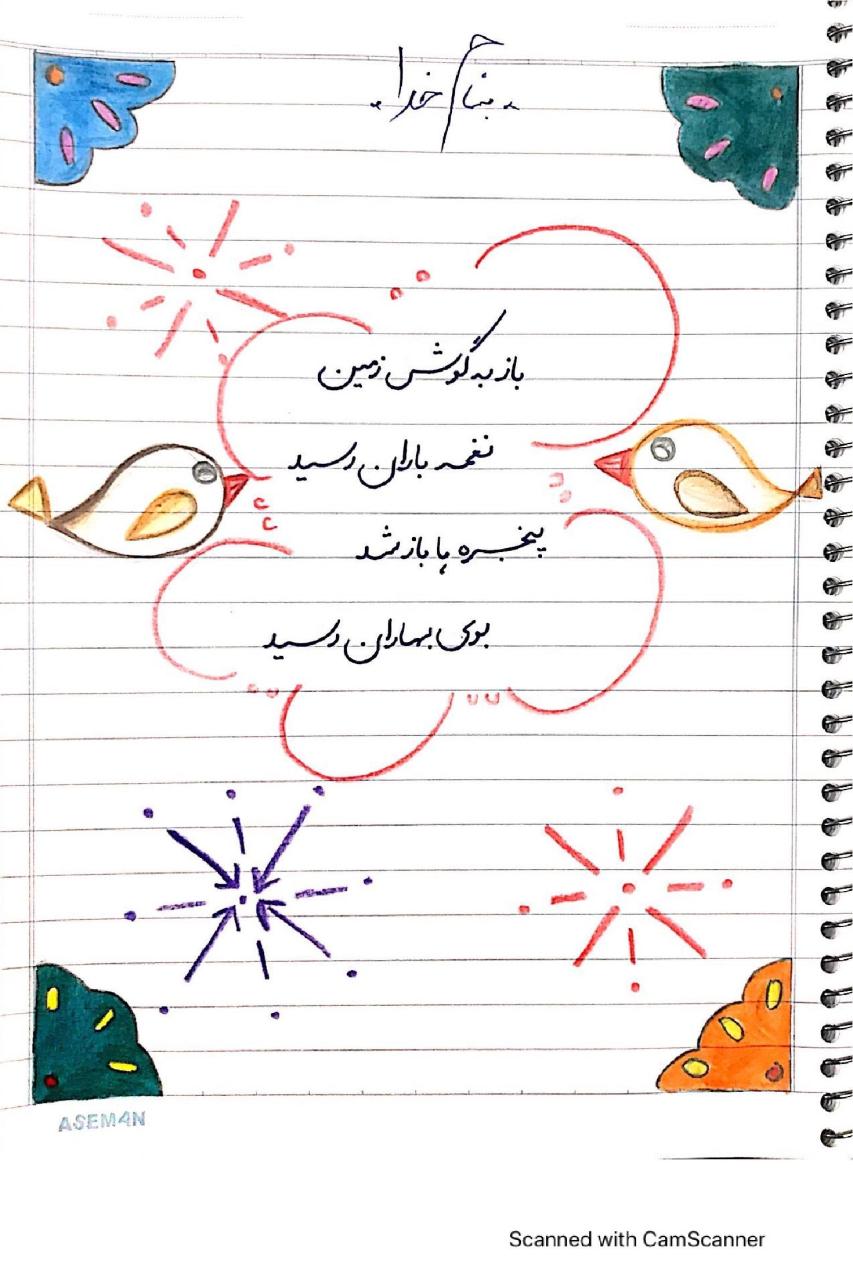 بنام خدا
باز به گوش زمین
نغمه باران رسید
پنجره ها باز شد
بوی بهاران رسید
ASEMAN
Scanned with CamScanner